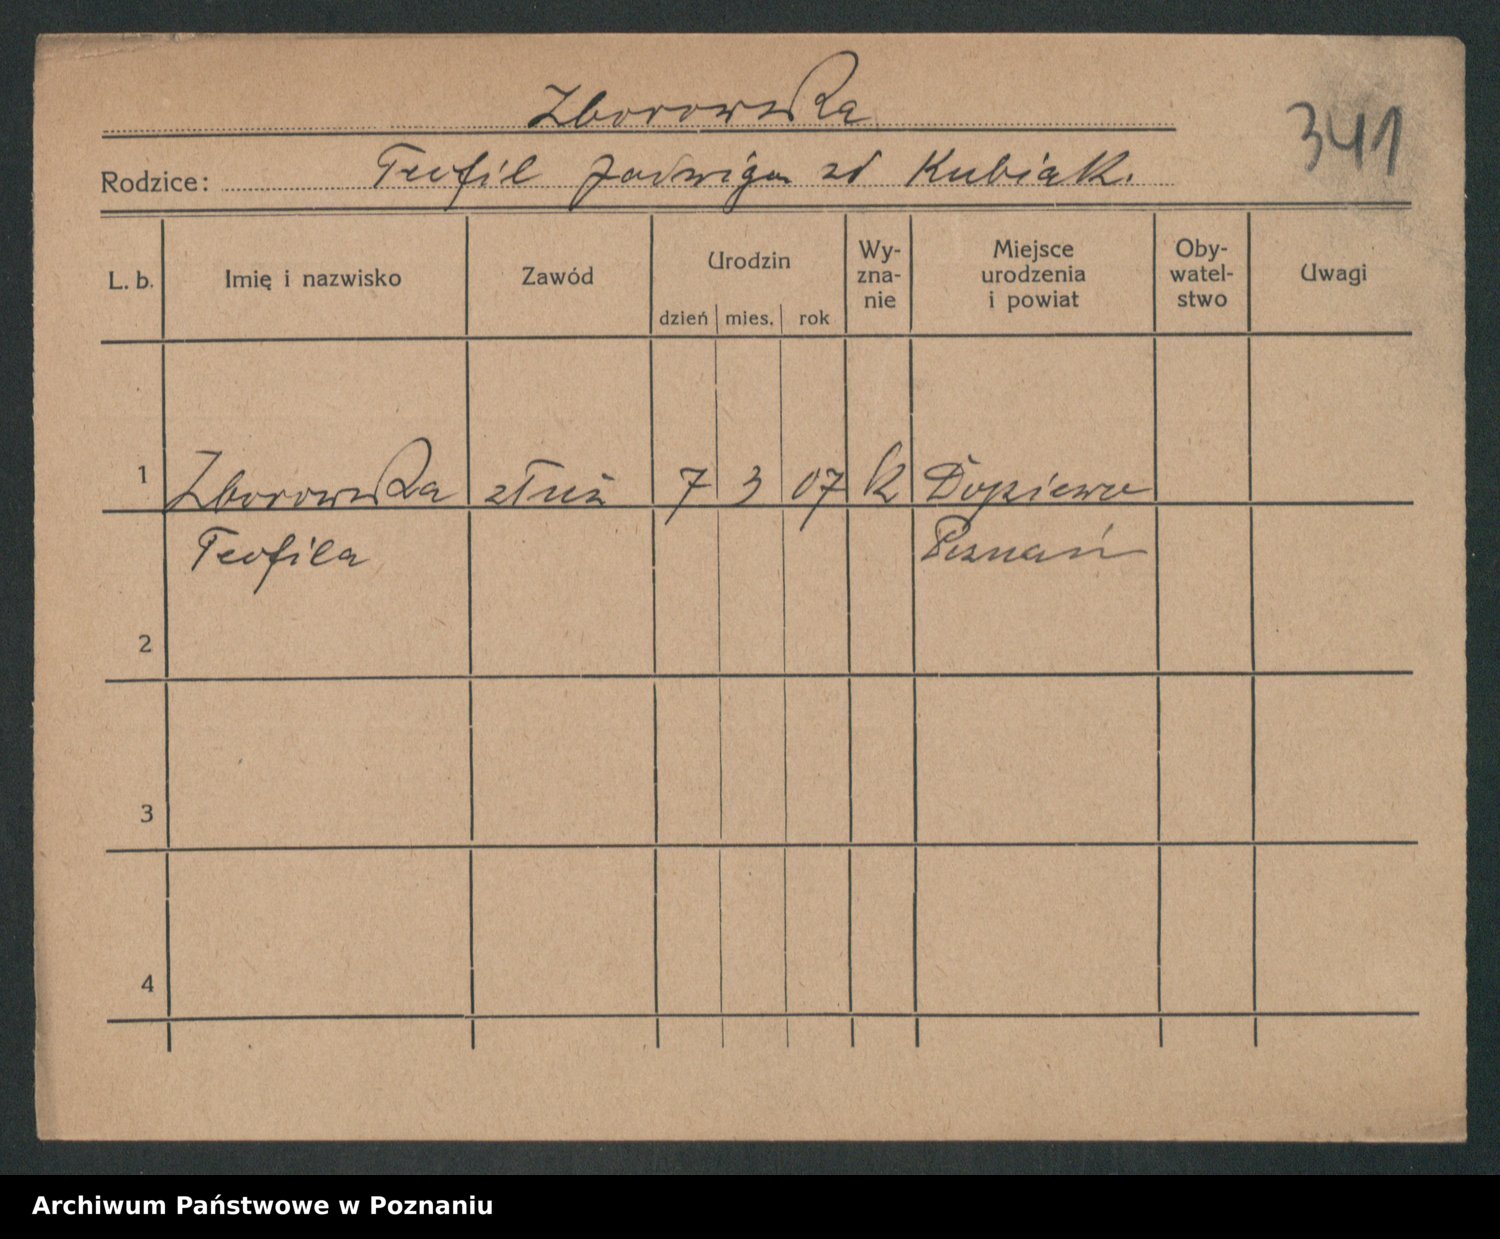 Zborowska
341
Rodzice: Teofil Jadwiga zd Kubiak.
L. b. Imię i nazwisko Zawód Urodzin dzień mies. rok Wy-zna-nie Miejsce urodzenia i powiat Oby-watel-stwo Uwagi
1 Zborowska służ 7 3 07 k Dopiewo
Teofila Poznań
2
3
4
Archiwum Państwowe w Poznaniu